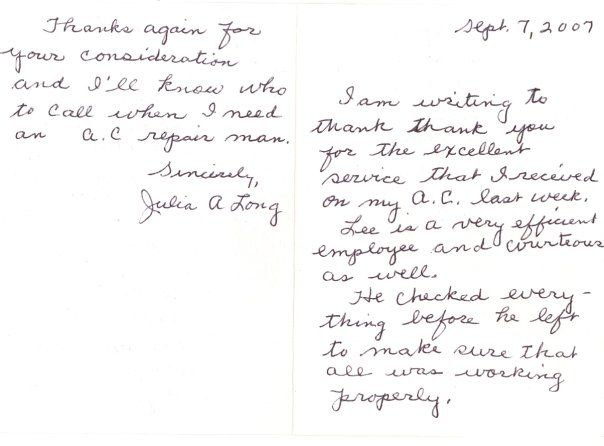 Sept. 7, 2007
I am writing to
thank thank you
for the excellent
service that I received
on my A.C. last week.
Lee is a very efficient
employee and courteous
as well.
He checked every-
thing before he left
to make sure that
all was working
properly.
Thanks again for
your consideration
and I'll know who
to call when I need
an A.C repair man.
Sincerely,
Julia A Long